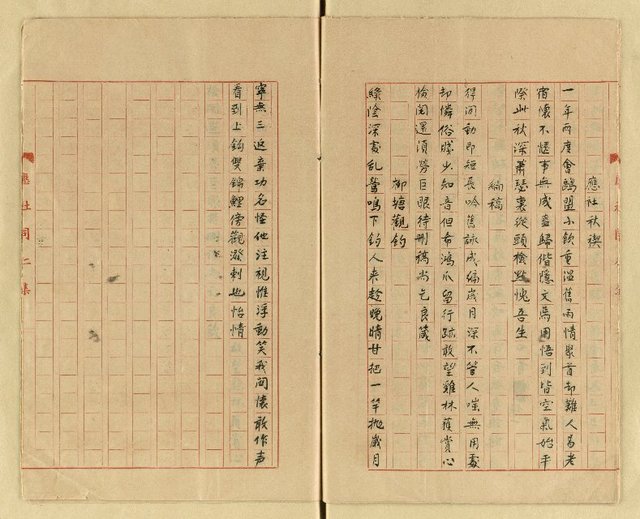 應社秋禊
一年兩度會鷗盟小飲重溫舊雨情聚首却難人易老
宿懷不遂事無成盍歸偕隱文焉用悟到皆空氣始平
際此秋深蕭瑟裏從頭檢點愧吾生
編稿
得閒動即短長吟舊詠成編歲月深不管人嗤無用處
却憐俗賤少知音但希鴻爪留行跡敢望雞林獲賞心
檢閱還須勞巨眼待刪稿尚乞良箴
柳塘觀釣
綠陰深處亂蟬鳴下釣人來趁晚晴甘把一竿拋歲月
寧無三迫棄功名怪他注視惟浮動笑我閒懷敢作声
看到上鈎雙錦鯉傍觀潑剌也怡情
應社同仁集